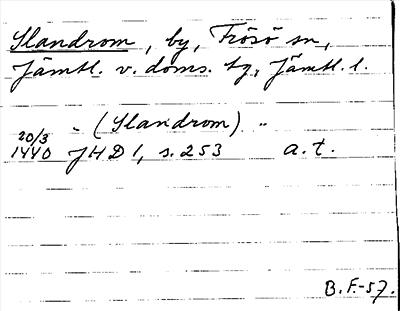 Slandrom, by, Frösö sn,
Jämtl. v. doms. tg, Jämtl. l.
" (Slandrom) "
20/3
1440 JHD 1, s. 253 a.t.
B.F.-57.